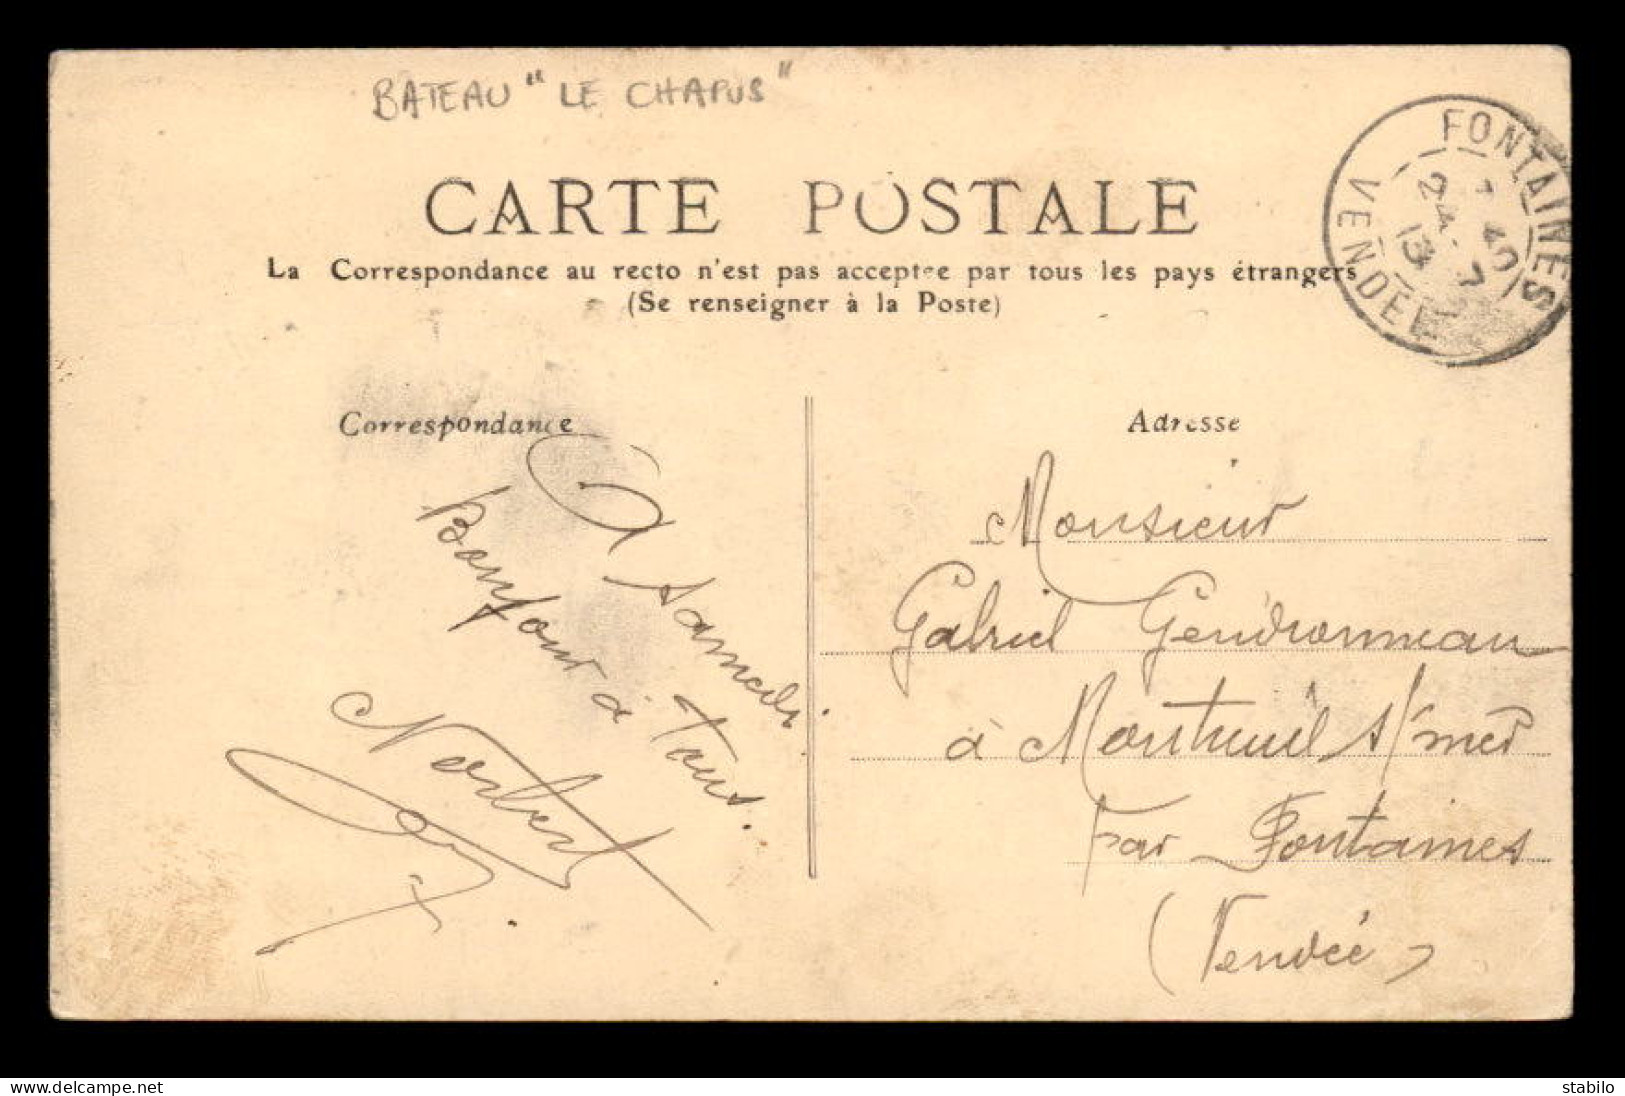 BATEAU "LE CHAPUS"
FONTAINES
VENDÉE
CARTE POSTALE
La Correspondance au recto n'est pas acceptée par tous les pays étrangers
(Se renseigner à la Poste)
Correspondance
A samedi.
Bonjour à tous.
Norbert
Adresse
Monsieur
Gabriel Gendronneau
à Montreuil s/ mer
par Fontaines
(Vendée)
delcampe.net
stabilo